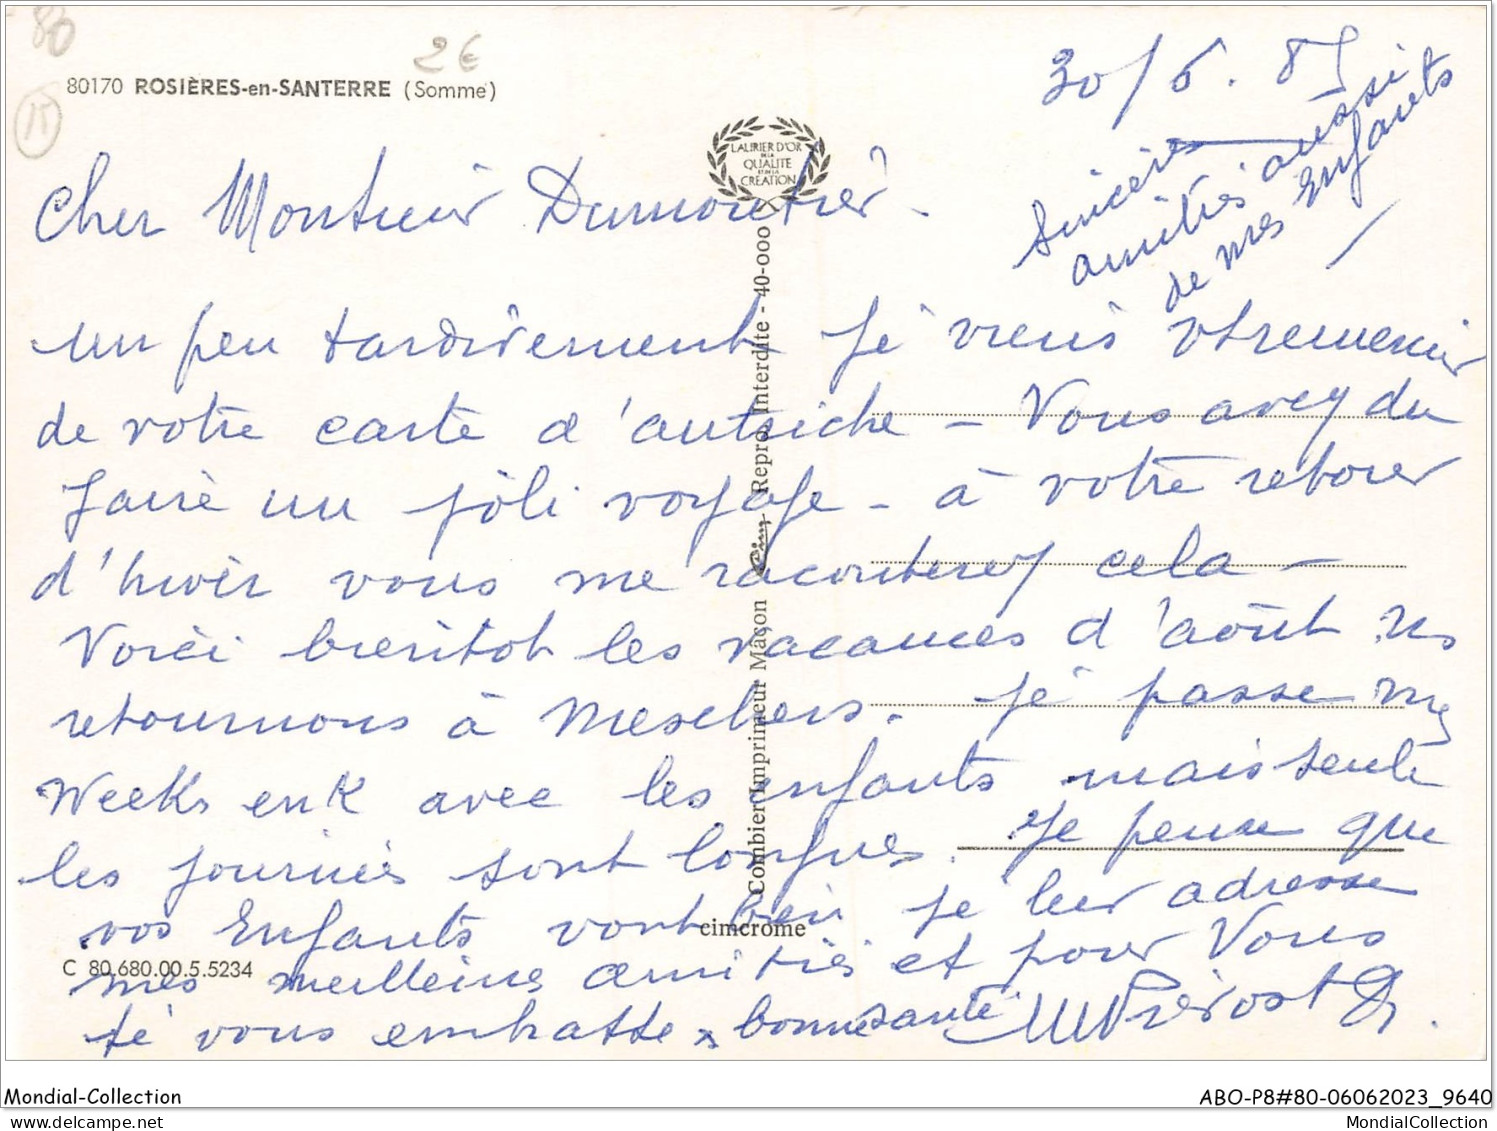 80
2€
80170 ROSIÈRES-en-SANTERRE (Somme)
15
30/6.85
LAURIER D'OR
DE LA
QUALITE
ET DE LA
CREATION
Sincères
amitiés aussi
de mes Enfants
Cher Monsieur Dumoutier.
un peu tardivement je viens
de votre carte d'autriche - Vous avez du
faire un joli voyage - à votre retour
d'hiver vous me raconterez cela -
Voici bientot les vacances d'août ns
retournons à Meschers. je passe mes
Weeks enK avec les enfants mais seule
les journées sont longues. Je pense que
vos Enfants vont bien je leur adresse
mes meilleurs amitiés et pour Vous
je vous embrasse bonne santé MPrévost
Combier Imprimeur Mâcon Cim Repro. Interdite - 40-000
cimcrome
C 80.680.00.5.5234
Mondial-Collection
ABO-P8#80-06062023_9640
www.delcampe.net
MondialCollection